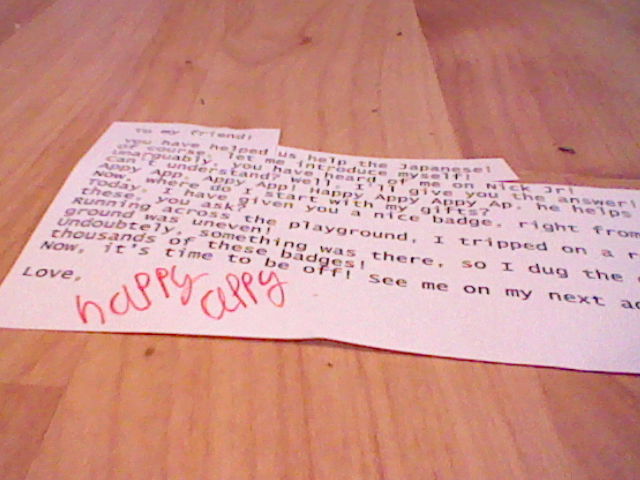 To my friend!
you have helped us help the Japanese!
of course, let me introduce myself!
Unarguably, you have heard of me on Nick Jr!
Can't understand? Well, I'll give you the answer!
Appy App, Appy App! Happy Appy Appy Ap, he helps
Now, where do I start with my gifts?
Today, I have given you a nice badge, right from
these, you ask?
Running across the playground, I tripped on a r
ground was uneven!
Undoubtely, something was there, so I dug the
thousands of these badges!
Now, it's time to be off! See me on my next ad
Love,
happy appy